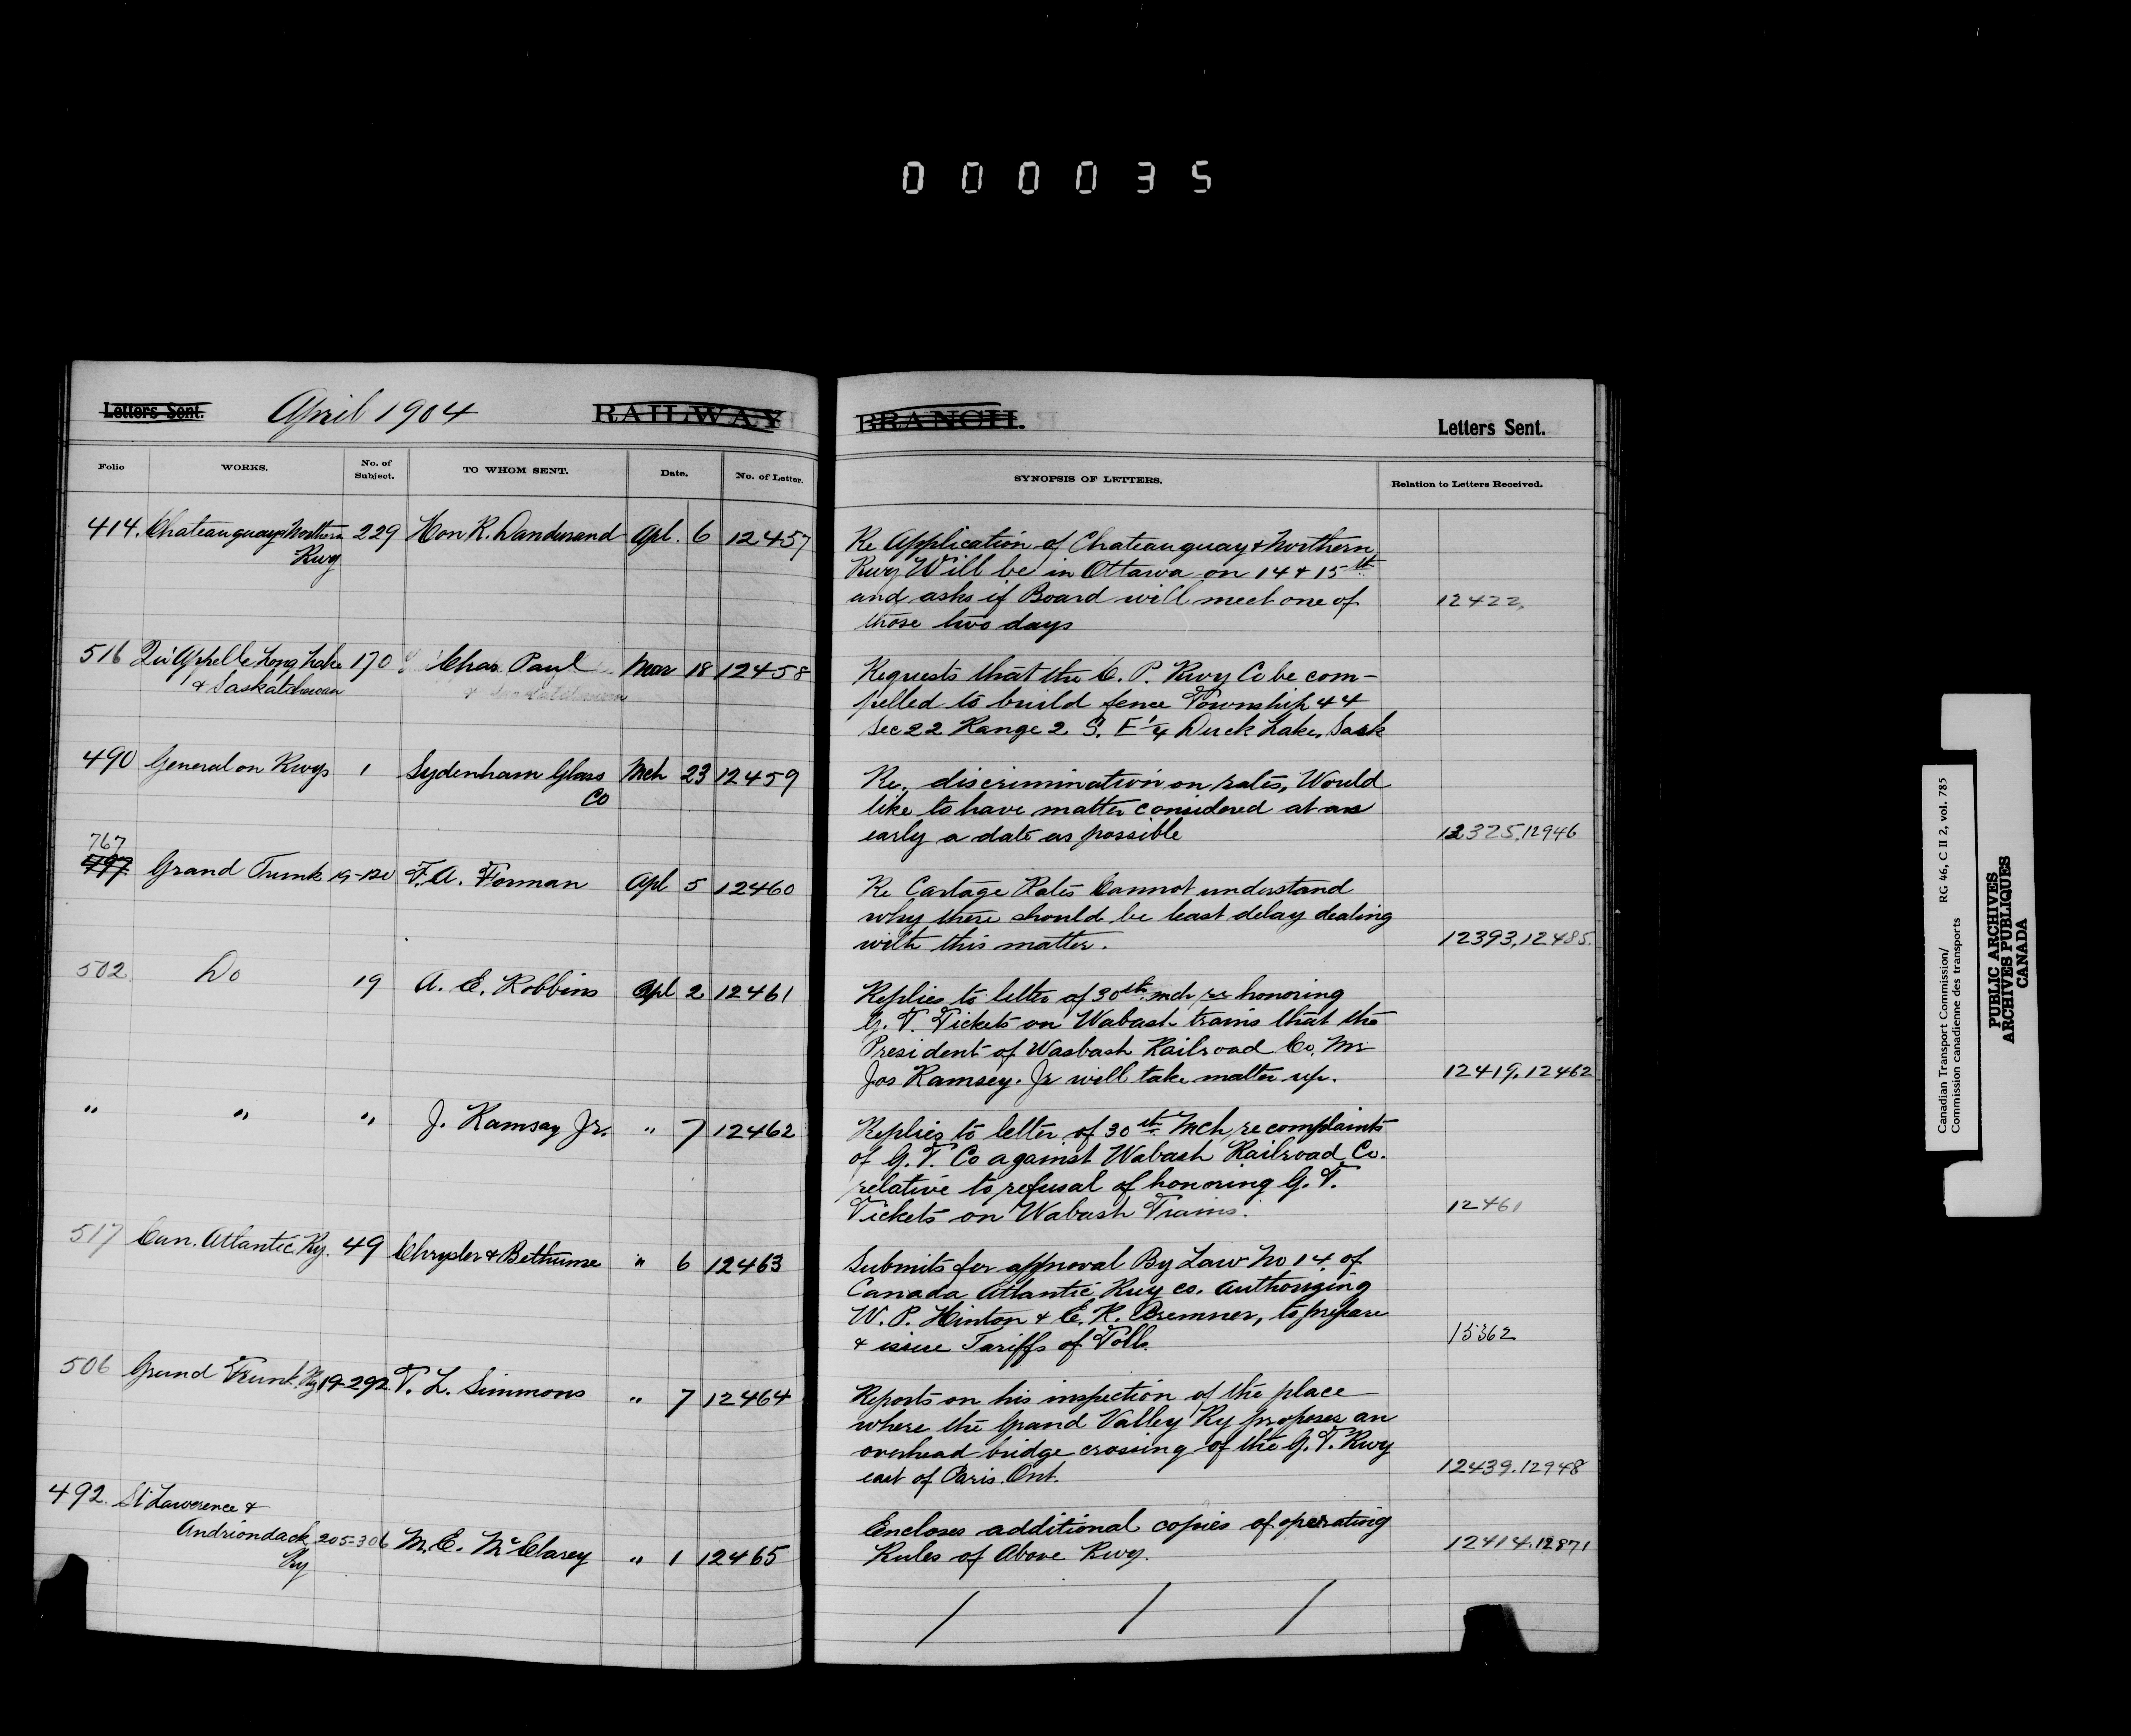 000035
Letters Sent. April 1904 RAILWAY
Folio WORKS. No. of Subject. TO WHOM SENT. Date. No. of Letter.
414. Chateauguay & Northern 229 Hon R. Dandurand Apl. 6 12457
Rwy
516 Qu'Appelle Long Lake 170 Chas. Paul Mar 18 12458
& Saskatchewan
490 General on Rwys 1 Sydenham Glass Mch 23 12459
Co
767
497 Grand Trunk 19-120 F. A. Forman Apl 5 12460
502 Do 19 A. E. Robbins Apl 2 12461
" " " J. Ramsay Jr. " 7 12462
517 Can. Atlantic Ry. 49 Chrysler & Bethune " 6 12463
506 Grand Trunk Ry 19-292 T. L. Simmons " 7 12464
492. St Lawerence &
Andriondack 205-306 M. E. McClarey " 1 12465
Ry
BRANCH. Letters Sent.
SYNOPSIS OF LETTERS. Relation to Letters Received.
Re Application of Chateauguay & Northern
Rwy Will be in Ottawa on 14 & 15th
and asks if Board will meet one of 12422,
those two days
Requests that the C. P. Rwy Co be com-
pelled to build fence Township 44
Sec 22 Range 2 S. E 1/4 Duck Lake, Sask
Re, discrimination on rates, Would
like to have matter considered at an
early a date as possible 12325,12946
Re Cartage Rates Cannot understand
why there should be least delay dealing
with this matter. 12393,12485.
Replies to letter of 30th mch re honoring
G. T. Tickets on Wabash trains that the
President of Wasbash Railroad Co, Mr
Jos Ramsey. Jr will take matter up. 12419,12462
Replies to letter of 30th Mch, re complaints
of G. T. Co against Wabash Railroad Co.
relative to refusal of honoring G. T.
Tickets on Wabash Trains. 12461
Submits for approval By Law No 14 of
Canada Atlantic Rwy co. Authorizing
W. P. Hinton & E. R. Bremner, to prepare
& issue Tariffs of Tolls. 15362
Reports on his inspection of the place
where the Grand Valley Ry proposes an
overhead bridge crossing of the G. T. Rwy
east of Paris. Ont. 12439.12948
Encloses additional copies of operating
Rules of Above Rwy. 12414.12871
/ / /
Canadian Transport Commission/ RG 46, C II 2, vol. 785
Commission canadienne des transports
PUBLIC ARCHIVES
ARCHIVES PUBLIQUES
CANADA